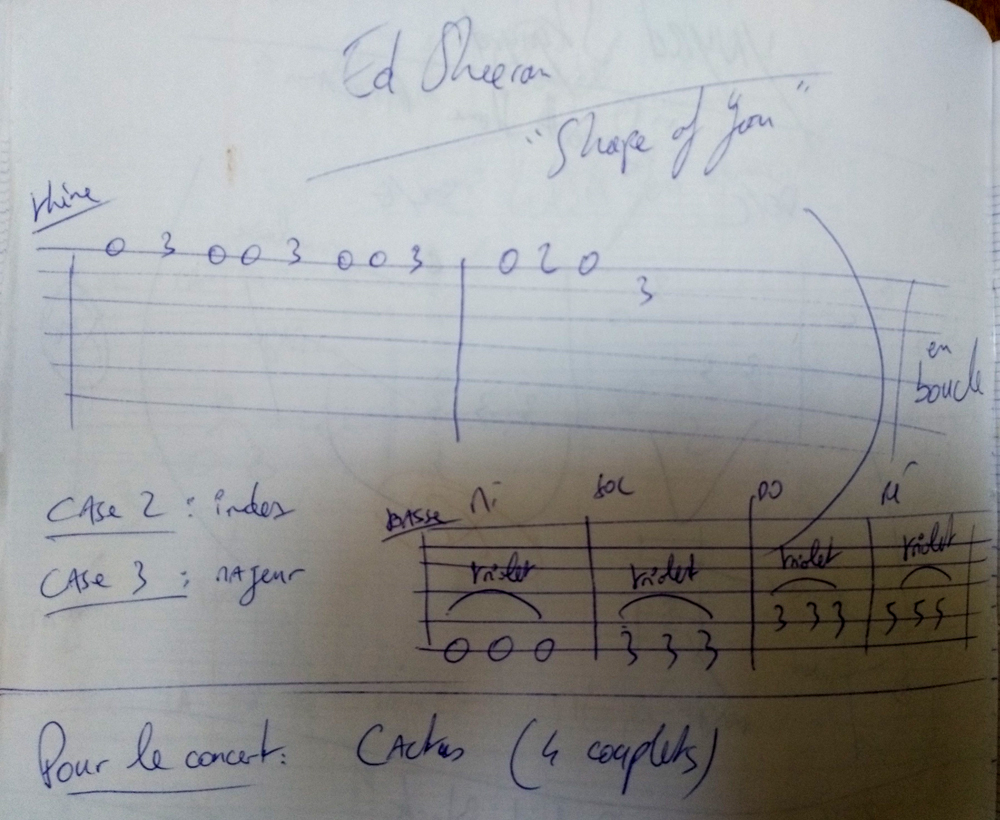 Ed Sheeran
"Shape of You"
thème
0 3 0 0 3 0 0 3 0 2 0
3
en
boucle
CASE 2 : index
CASE 3 : MAJEUR
BASSE Mi SOL DO Ré
triolet triolet triolet triolet
0 0 0 3 3 3 3 3 3 5 5 5
Pour le concert : CActus (4 couplets)